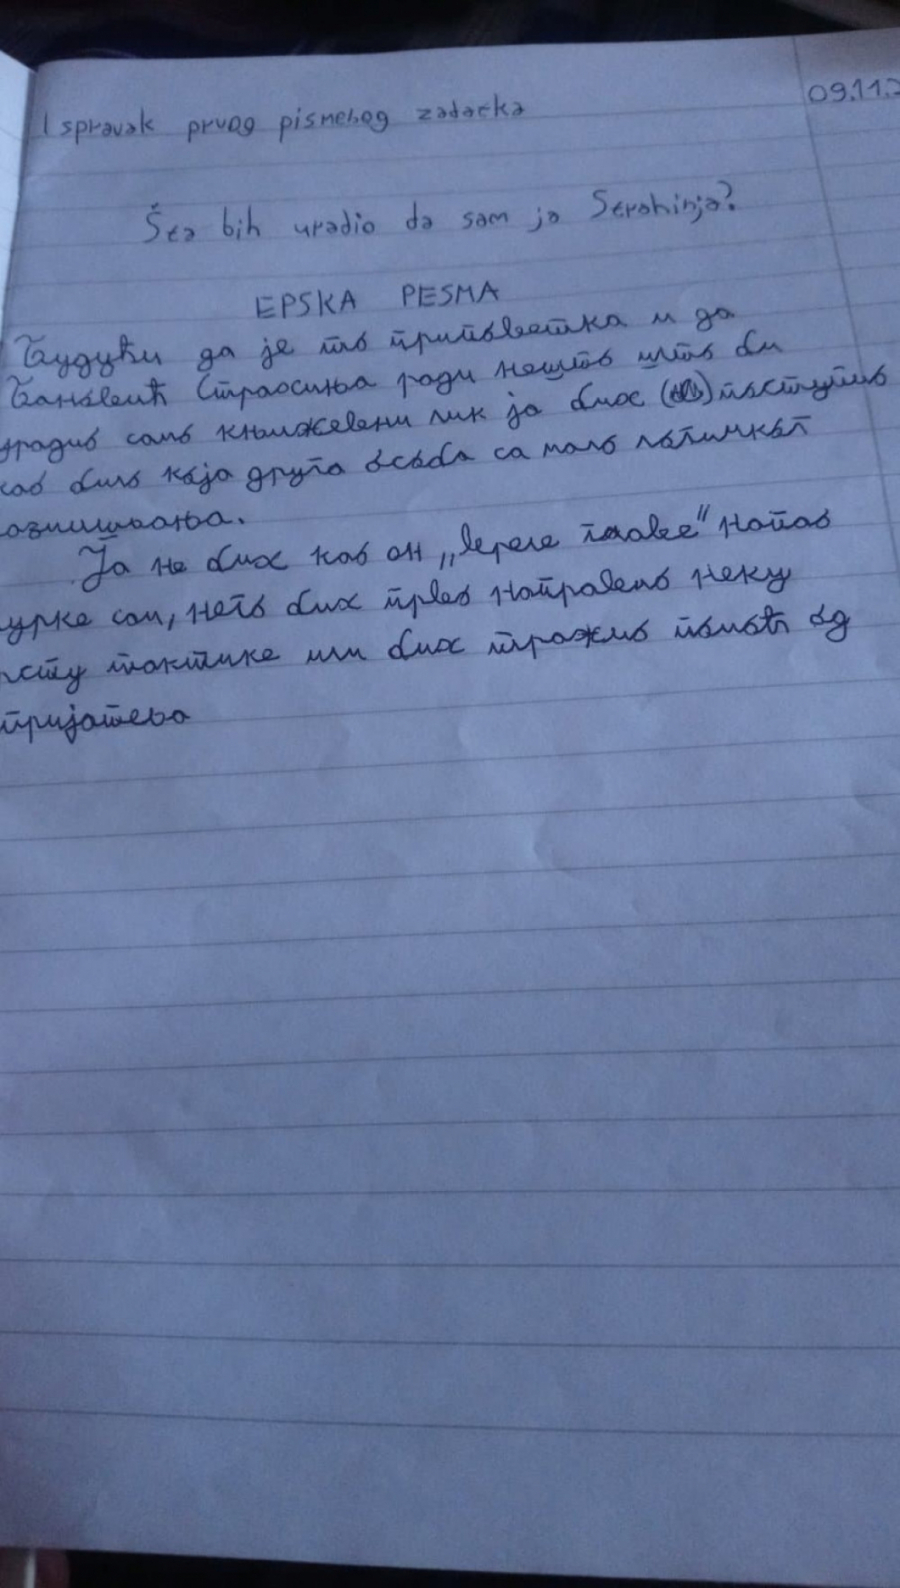 Ispravak prvog pismenog zadatka
09.11.2
Šta bih uradio da sam ja Strahinja?
EPSKA PESMA
Будући да је то приповетка и да
Бановић Страхиња ради нешто што би
урадио само књижевни лик ја бих поступио
као било која друга особа са мало логичког
размишљања.
Ја не бих као он „вреле главе" напао
турке сам, него бих прво направио неку
врсту тактике или бих тражио помоћ од
пријатеља